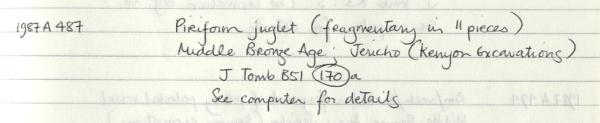 1987A487 Piriform juglet (fragmentary in 11 pieces)
Middle Bronze Age; Jericho (Kenyon Excavations)
J Tomb B51 (170)a
See computer for details